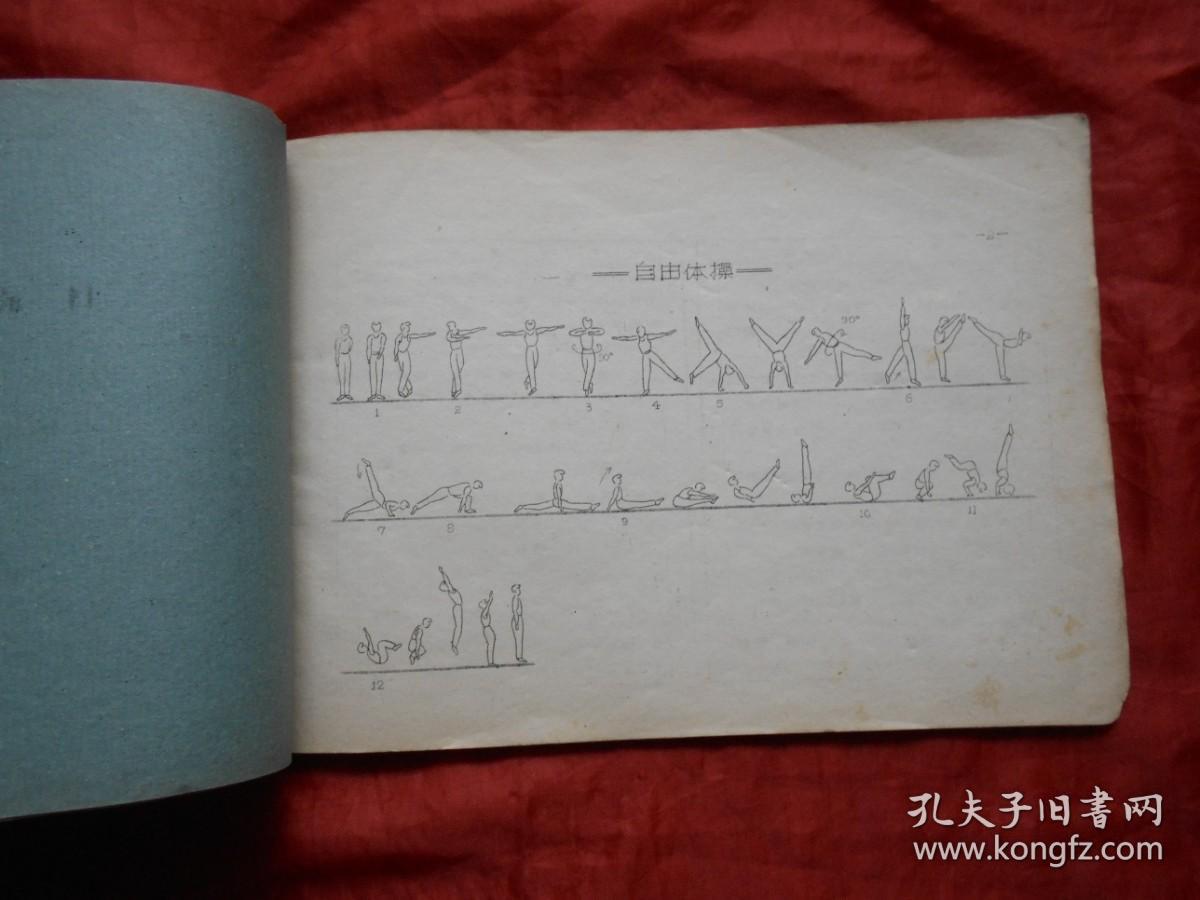 -2-
自由体操
90°
90°
1 2 3 4 5 6
7 8 9 10 11
12
孔夫子旧書网
www.kongfz.com